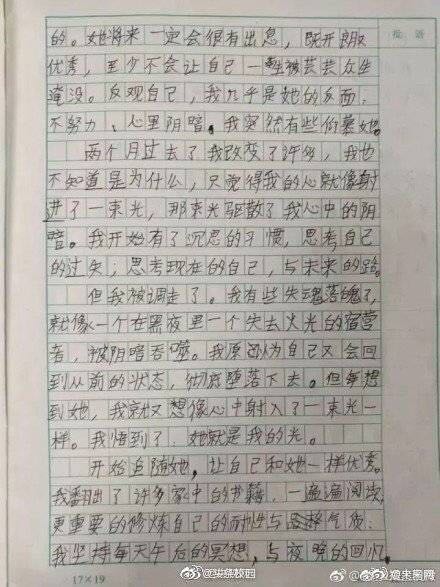 批 语
的。她将来一定会很有出息，既开朗又
优秀，至少不会让自己一生被芸芸众生
淹没。反观自己，我几乎是她的反面，
不努力、心里阴暗。我突然有些仰慕她。
两个月过去了我改变了许多，我也
不知道是为什么，只觉得我的心就像射
进了一束光，那束光驱散了我心中的阴
暗。我开始有了沉思的习惯，思考自己
的过失；思考现在的自己，与未来的路。
但我被调走了。我有些失魂落魄了，
就像一个在黑夜里一个失去火光的宿营
者，被阴暗吞噬。我原因为自己又会回
到从前的状态，彻底堕落下去。但每想
到她，我就又想像心中射入了一束光一
样。我悟到了，她就是我的光。
开始追随她，让自己和她一样优秀。
我翻出了许多家中的书籍，一遍遍阅读，
更重要的修炼自己的耐性与思择气质：
我坚持每天午后的冥想，与夜晚的回忆
17×19